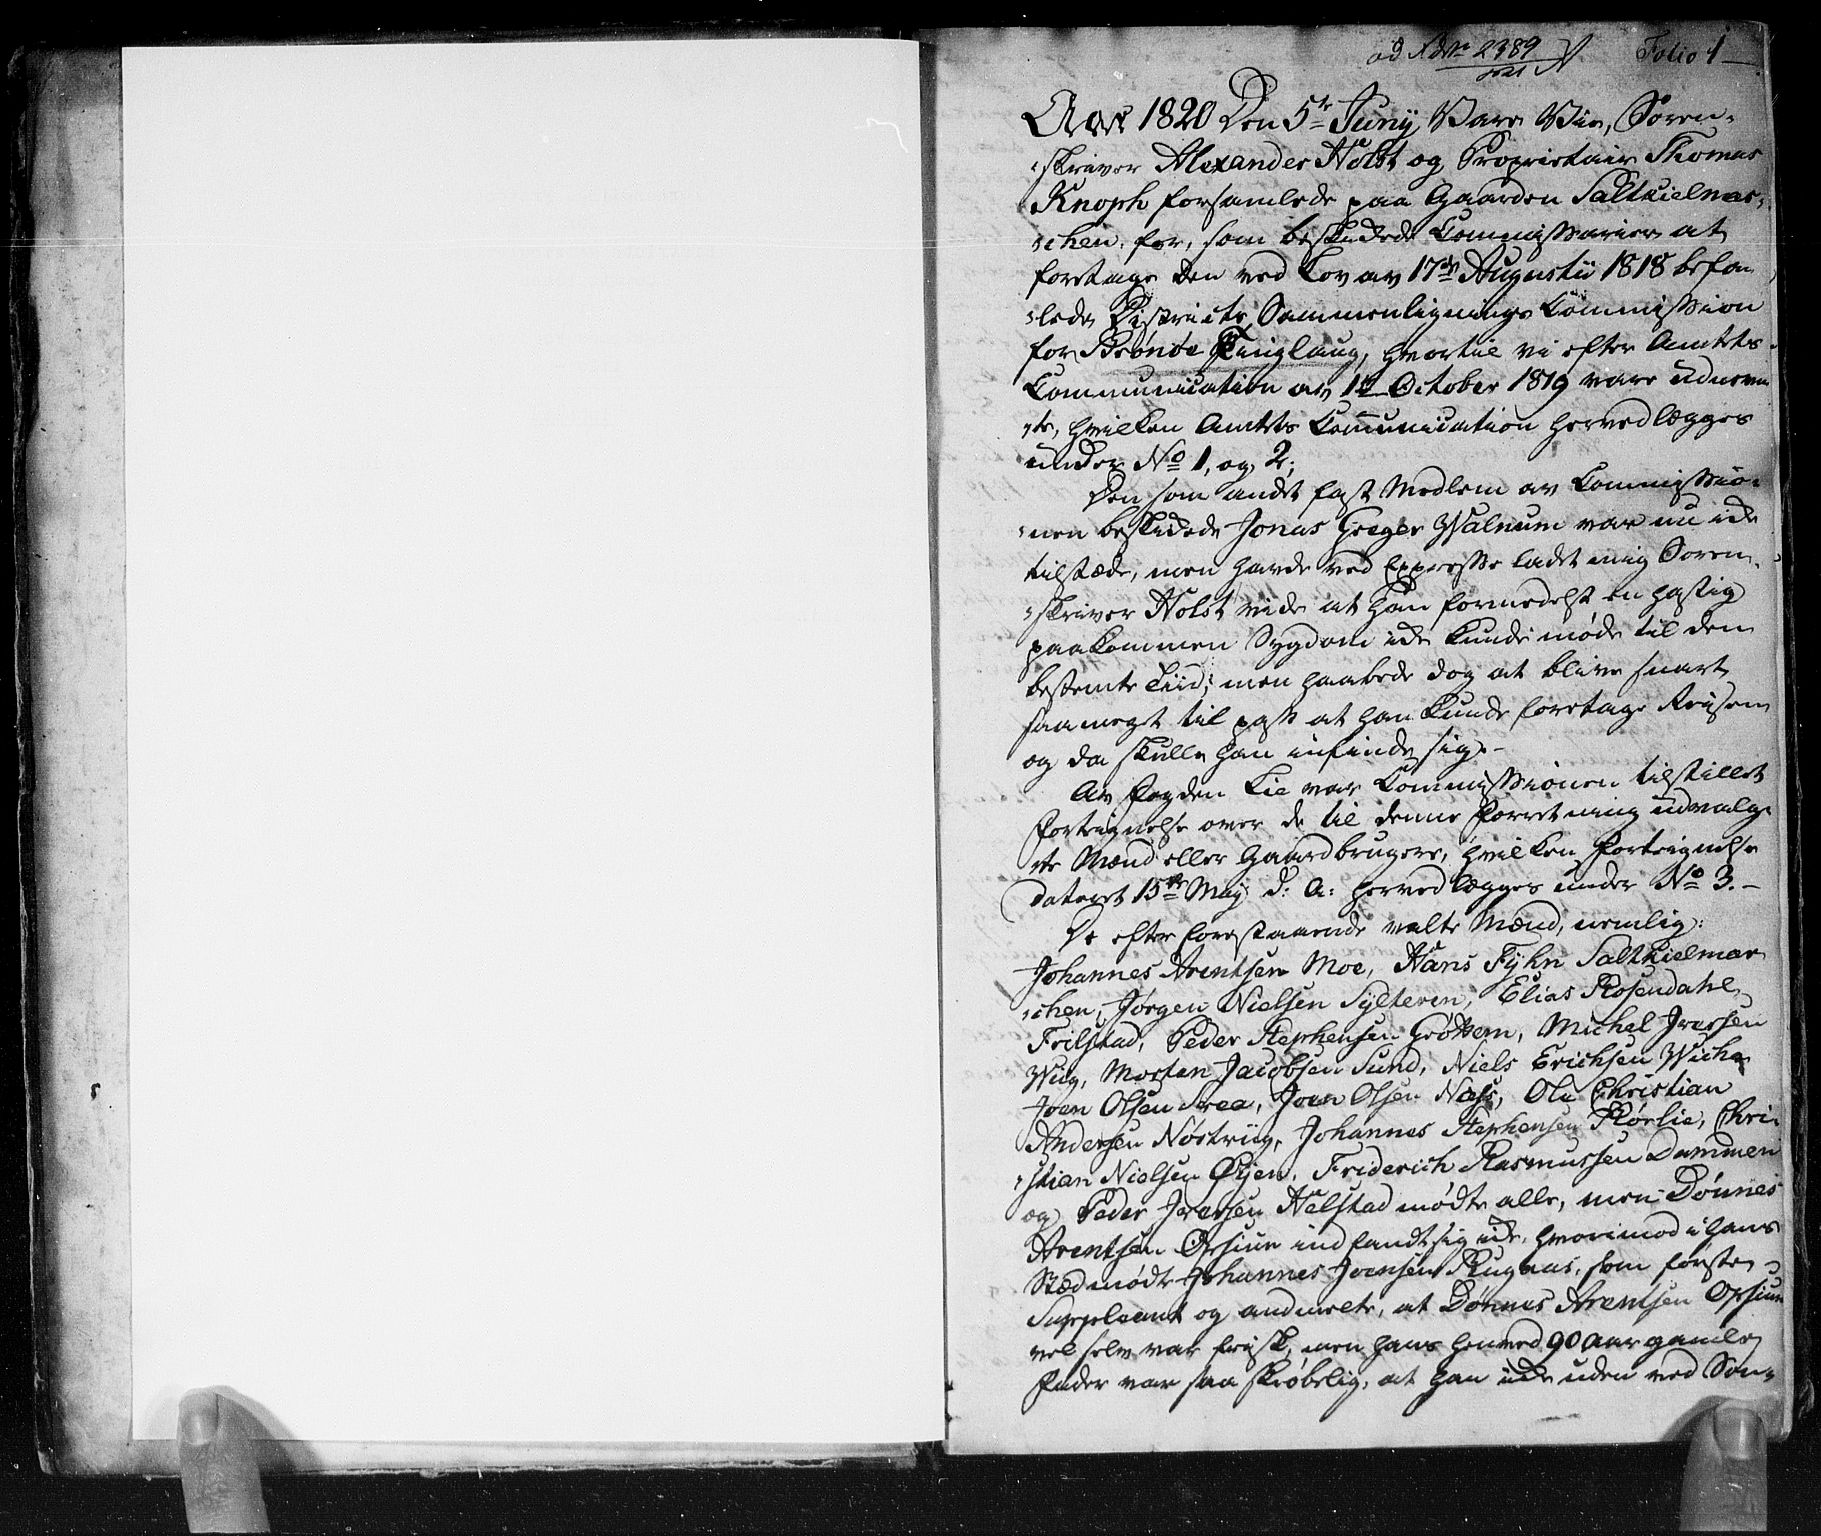 ad No 2389 Folio 1
Aar 1820 Den 5te Junij Vare Vie, Soren-
skriver Alexander Holst og Proprietair Thomas
Knoph forsamlede paa Gaarden Saltkielnæs-
schen, for, som beskikkede Commissarier at
foretage den ved Lov av 17de Augustii 1818 befa-
lede Districts Sammenlignings Commission
for Brønøe Tinglaug, hvortil vi efter Amtets
Communication av 12 October 1819 vare udnævn-
te, hvilken Amtets Communication herved lægges
under No 1, og 2;
Den som andet fast Medlem av Commissio-
nen beskikkede Jonas Greger Walnum var nu ikke
tilstæde, men havde ved Expresse ladet mig Soren-
skriver Holst vide at han formedelst en hastig
paakommen Sygdom ikke kunde møde til den
bestemte Tiid; men haabede dog at blive snart
saameget til pass at han kunde foretage Reisen
og da skulle han infinde sig.-
Av Fogden Lie var Commissionen tilstillet
Forteignelse over de til denne Forretning udvalg-
te Mænd eller Gaardbrugere, hvilken Forteignelse
dateret 15de Maij d: A: herved lægges under No 3.-
De efter forestaaende valte Mænd, nemlig:
Johannes Arentsen Moe, Hans Fyhn Saltkielmær-
schen, Jørgen Nielsen Sylteren, Elias Rosendahl
Frilstad, Peder Stephensen Grøttem, Michel Iversen
Wiig, Morten Jacobsen Sund, Niels Erichsen Wicha
Joen Olsen Aree, Joen Olsen Næss, Ole Christian
Andersen Nøstviig, Johannes Stephensen Rørlie, Chri-
stian Nielsen Øijen, Friderich Rasmussen Dammen
og Peder Iversen Helstad mødte alle, men Dønnes
Arentsen Opsiun indfandt sig ikke, hvorimod i hans
Stæd mødte Johannes Joensen Rugaas, som første
Suppleant og anmelte, at Dønnes Arentsen Opsiun
vel selv var frisk, men hans henved 90 aar gamle
Fader var saa skrøbelig, at han ikke uden ved Søn-